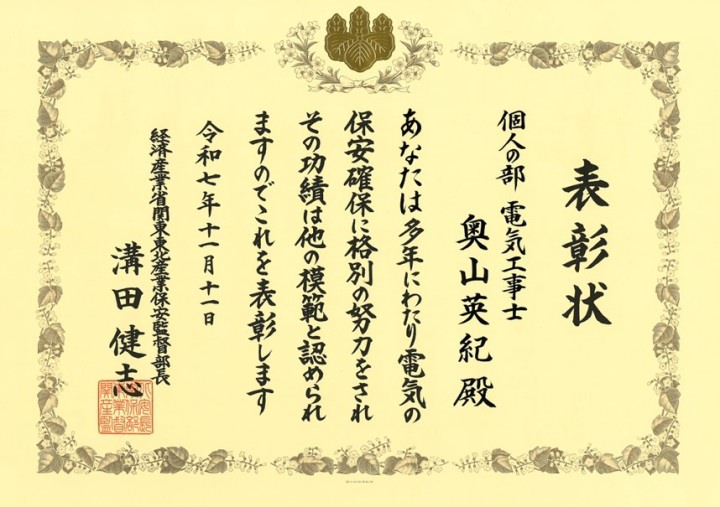 表彰状
個人の部 電気工事士
奥山英紀殿
あなたは多年にわたり電気の
保安確保に格別の努力をされ
その功績は他の模範と認められ
ますのでこれを表彰します
令和七年十一月十一日
経済産業省関東東北産業保安監督部長
溝田健志